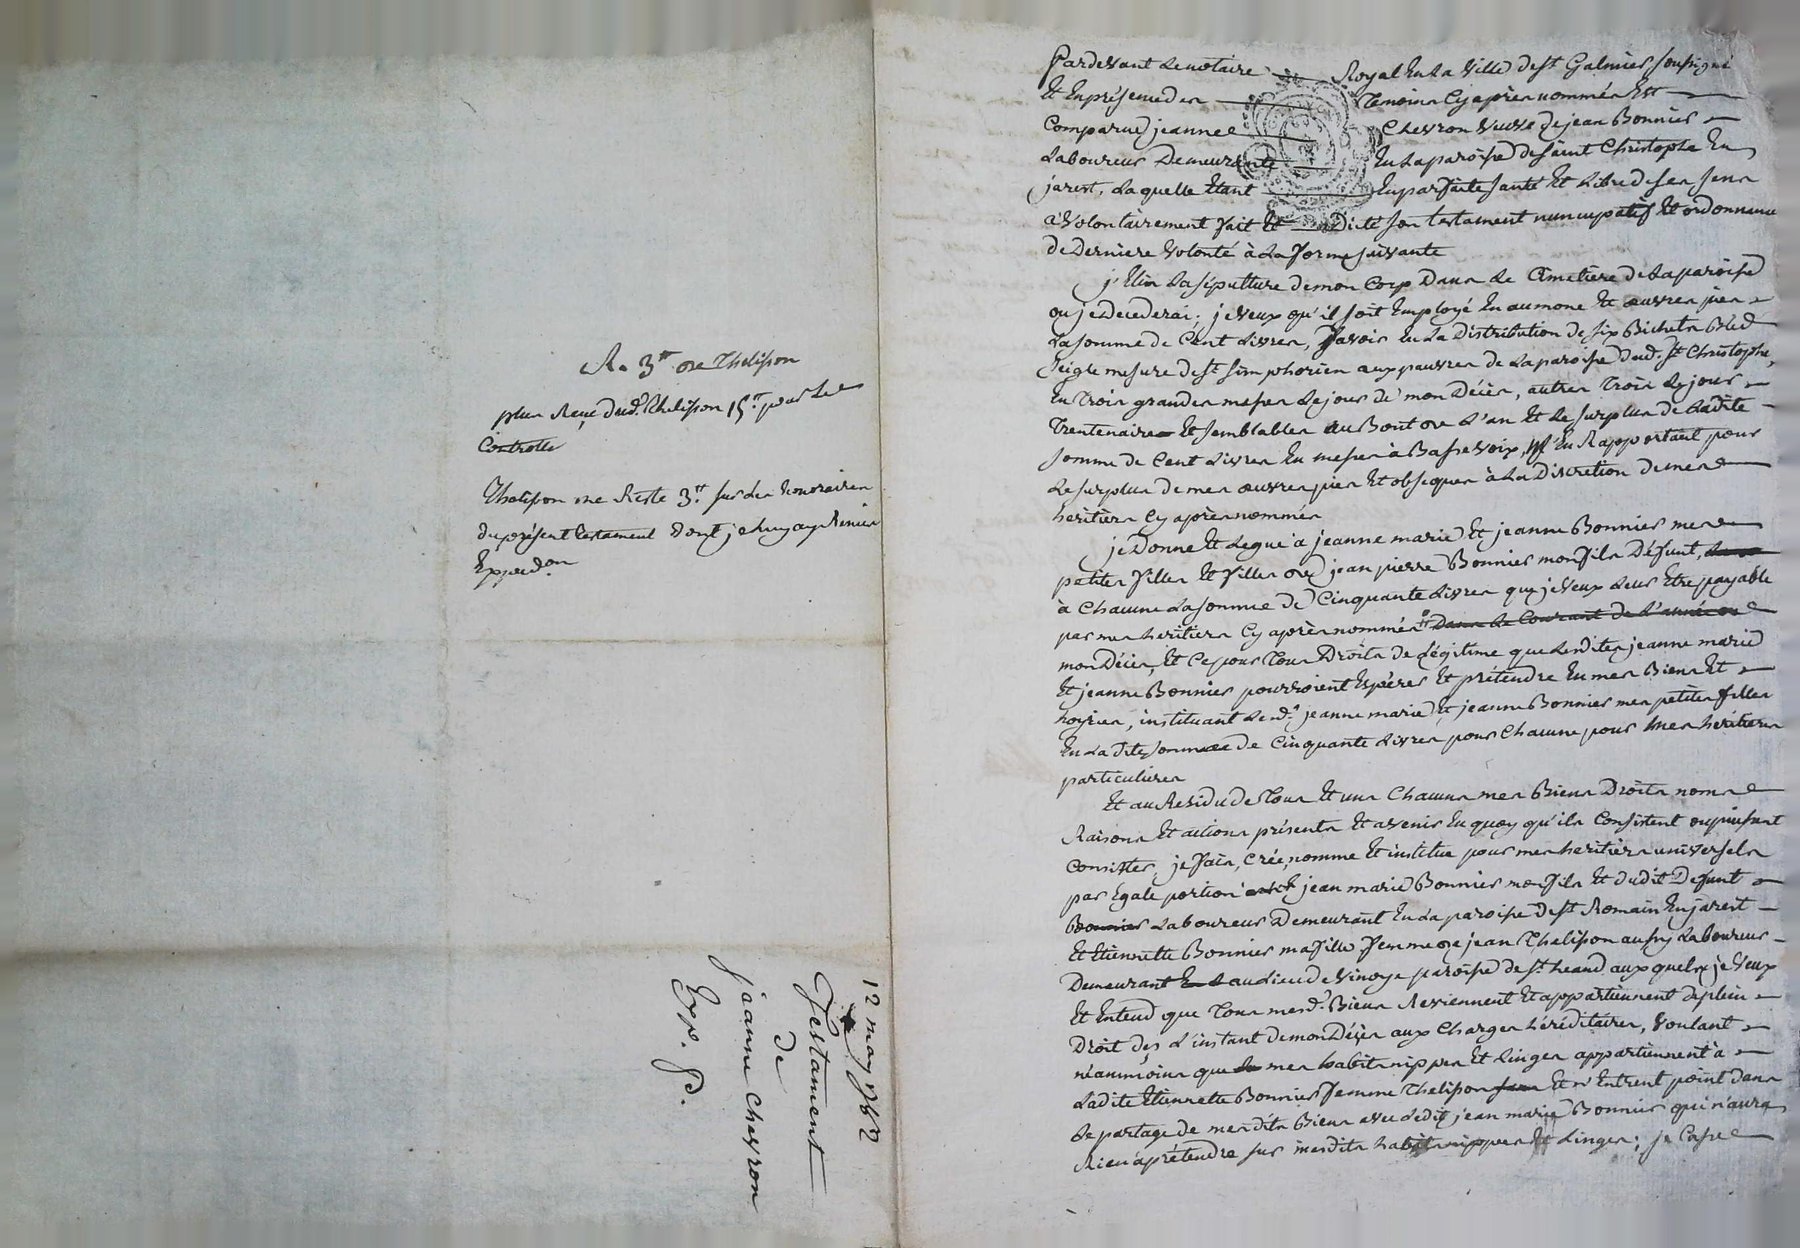 R. 3tt de Thelisson
plus Reçu dud. Thelisson 15s pour Le
Controlle
Thelisson me Reste 3tt sur Les honoraires
du présent testament dont je Luy ay Remis
Expedon
12 may 1782
Testament
de
jeanne Chevron
Exp. P.
Pardevant Le notaire Royal En La Ville de St Galmier soussigné
Et En présence des Temoins Cy après nommés Est
Comparue jeanne Chevron Veuve de jean Bonnier
Laboureur Demeurante En La paroisse de saint Christophe En
jarest, Laquelle Etant En parfaite santé Et Libre de ses sens
a Volontairement fait Et Dicté son testament nuncupatif Et ordonnance
de Derniere Volonté à La forme suivante
j'Elis La sépulture de mon Corp Dans Le Cimetiere de La paroisse
ou je Decederai; je Veux qu'il soit Employé En aumone Et œuvres pies
La somme de Cent Livres, savoir En La Distribution de six Bichets Bled
seigle mesure de St simphorien aux pauvres de La paroisse dud. St Christophe,
En Trois grandes messes Le jour de mon Décès, autres Trois Le jour
Trentenaire Et semblables au Bout de L'an Et Le surplus de Ladite
somme de Cent Livres En messes à Basse Voix, M'En Rapportant pour
Le surplus de mes œuvres pies Et obseques à La Discretion de mes
heritiers Cy après nommés
je Donne Et Legue à jeanne marie Et jeanne Bonnier mes
petites filles Et filles de jean pierre Bonnier mon fils Défunt,
à Chacune La somme de Cinquante Livres que je Veux Leur Etre payable
par mes heritiers Cy après nommés Dans Le Courant de L'année de
mon Décès, Et Ce pour Tous Droits de Légitime que Lesdites jeanne marie
Et jeanne Bonnier pourroient Espérer Et prétendre En mes Biens Et
hoyries, instituant Lesd. jeanne marie Et jeanne Bonnier mes petites filles
En La Dite somme de Cinquante Livres pour Chacune pour mes heritieres
particulieres
Et au Residu de Tous Et uns Chacuns mes Biens Droits noms
Raisons Et actions présents Et avenir En quoy qu'ils Consistent ou puissent
Consister, je fais, Crée, nomme Et institue pour mes heritiers universels
par Egale portion jean marie Bonnier mon fils Et dudit Defunt
Bonnier Laboureur Demeurant En La paroisse de St Romain En jarest
Et Etiennette Bonnier ma fille femme de jean Thelisson aussy Laboureur
Demeurant En L au Lieu de Vinoye paroisse de St heand aux quels je Veux
Et Entend que Tous mesd. Biens Reviennent Et appartiennent de plein
Droit dès L'instant de mon Décès aux Charges héréditaires, Voulant
néanmoins que mes habits nippes Et Linges appartiennent à
Ladite Etiennette Bonnier femme Thelisson Et n'Entrent point dans
Le partage de mesdits Biens avec Ledit jean marie Bonnier qui n'aura
Rien à prétendre sur mesdits habits nippes Et Linges; je Casse